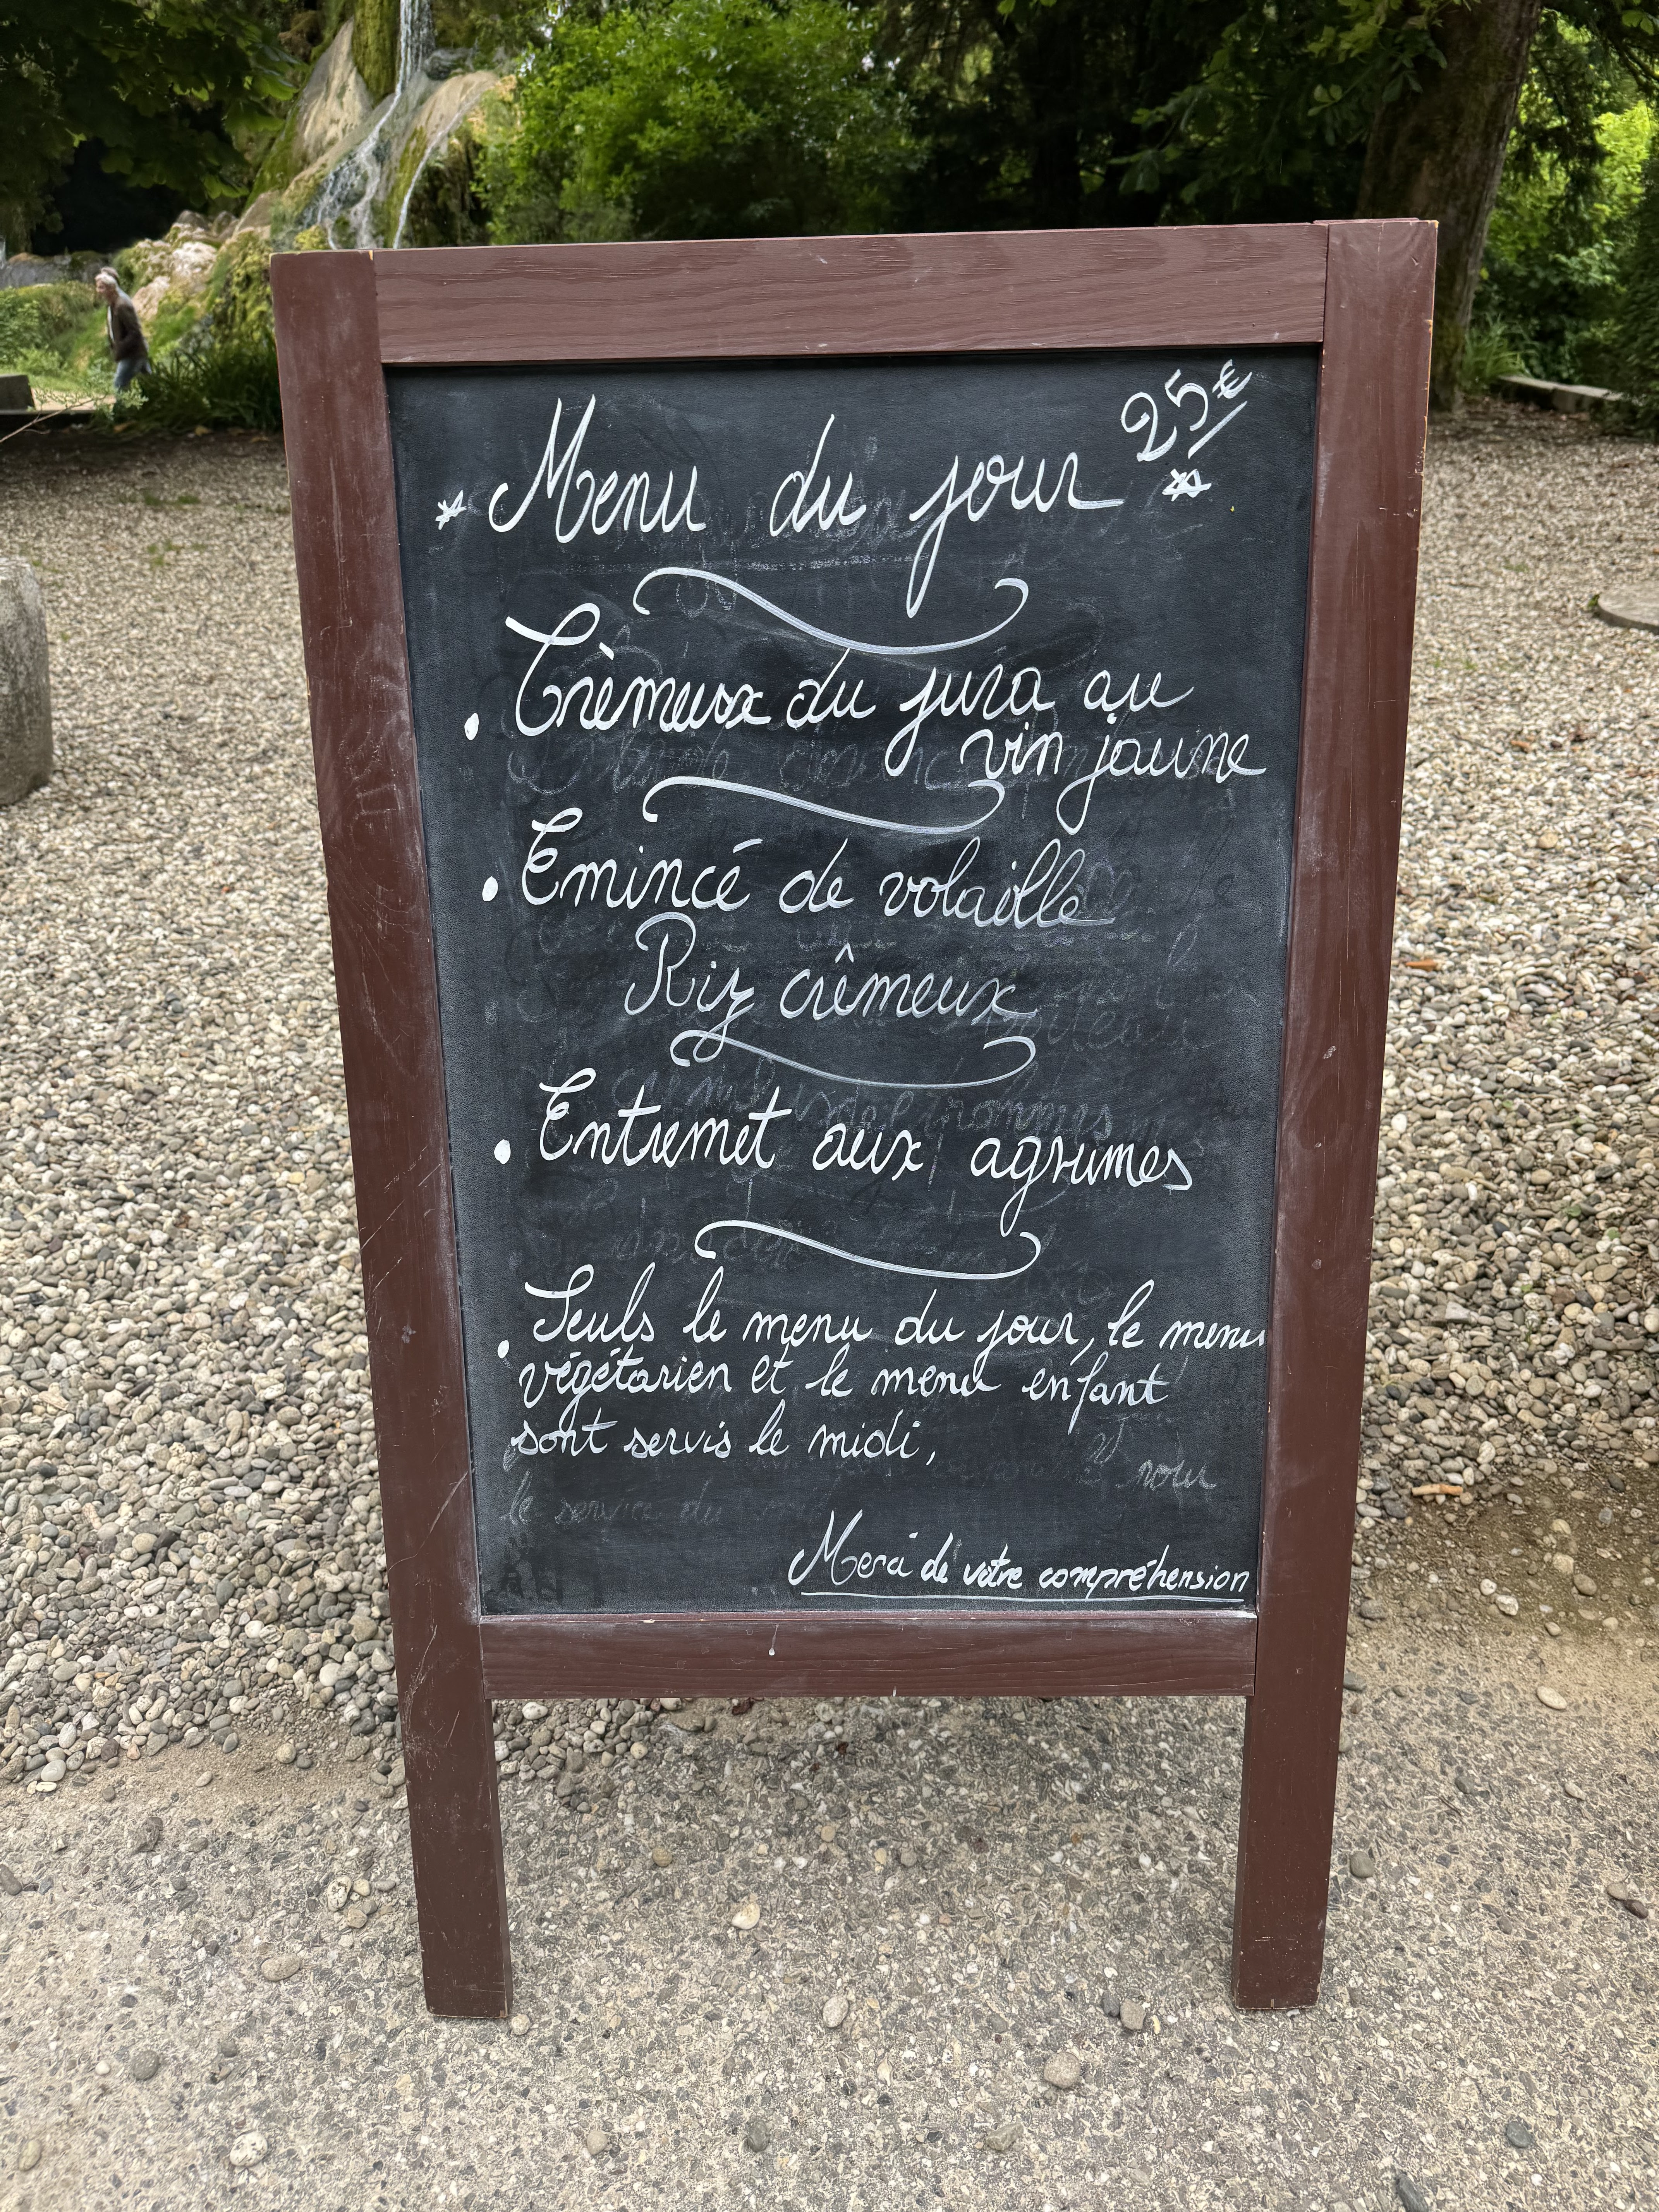 25€
Menu du jour
Crèmeux du jura au
vin jaune
Emincé de volaille
Riz crêmeux
Entremet aux agrumes
Seuls le menu du jour, le menu
végétarien et le menu enfant
sont servis le midi,
pour
le service du
Merci de votre compréhension